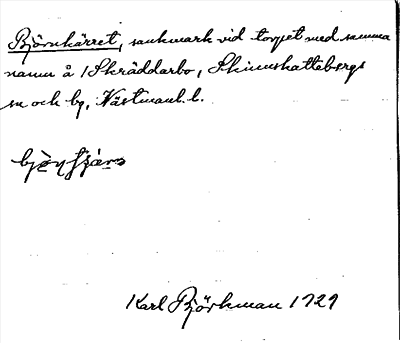 Björnkärret, sankmark vid torpet med samma
namn å 1 Skräddarbo, Skinnskattebergs
sn och bg, Västmanl. l.
Karl Björkman 1929